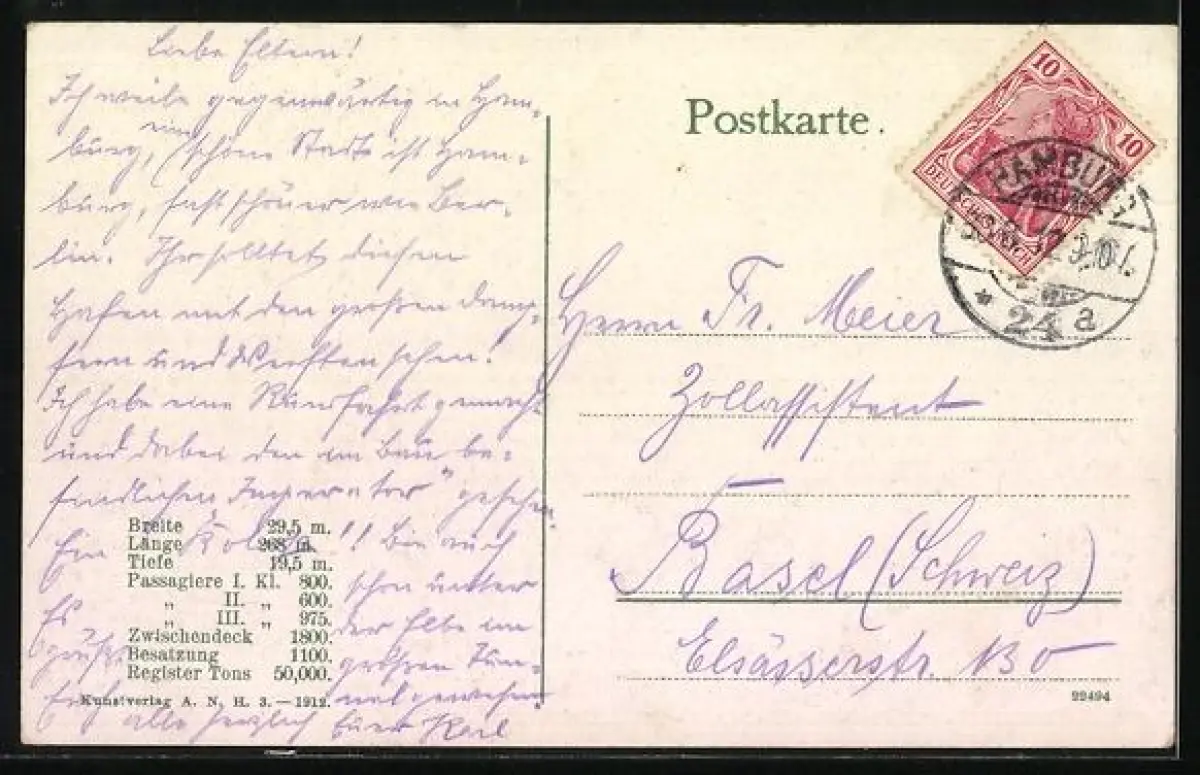 Liebe Eltern!
Ich weile gegenwärtig in Ham-
burg, eine schöne Stadt ist Ham-
burg, fast schöner wie Ber-
lin. Ihr solltet diesen
Hafen mit den großen Damp-
fern und Werften sehen!
Ich habe eine Rundfahrt gemacht
und dabei den im Bau be-
findlichen Imperator" gesehen.
Ein Koloß!! Bin auch
schon unter
der Elbe im
großen Tun-
nel gewesen.
Es
grüßt
Euch
alle herzlich Euer Karl
Breite 29,5 m.
Länge 268 m.
Tiefe 19,5 m.
Passagiere I. Kl. 800.
„ II. „ 600.
„ III. „ 975.
Zwischendeck 1800.
Besatzung 1100.
Register Tons 50,000.
Kunstverlag A. N. H. 3.—1912.
Postkarte.
10
10
DEUTSCHES REICH
HAMBURG
24 a
Herrn Fr. Meier
Zollassistent
Basel (Schweiz)
Elsässerstr. 130
22494